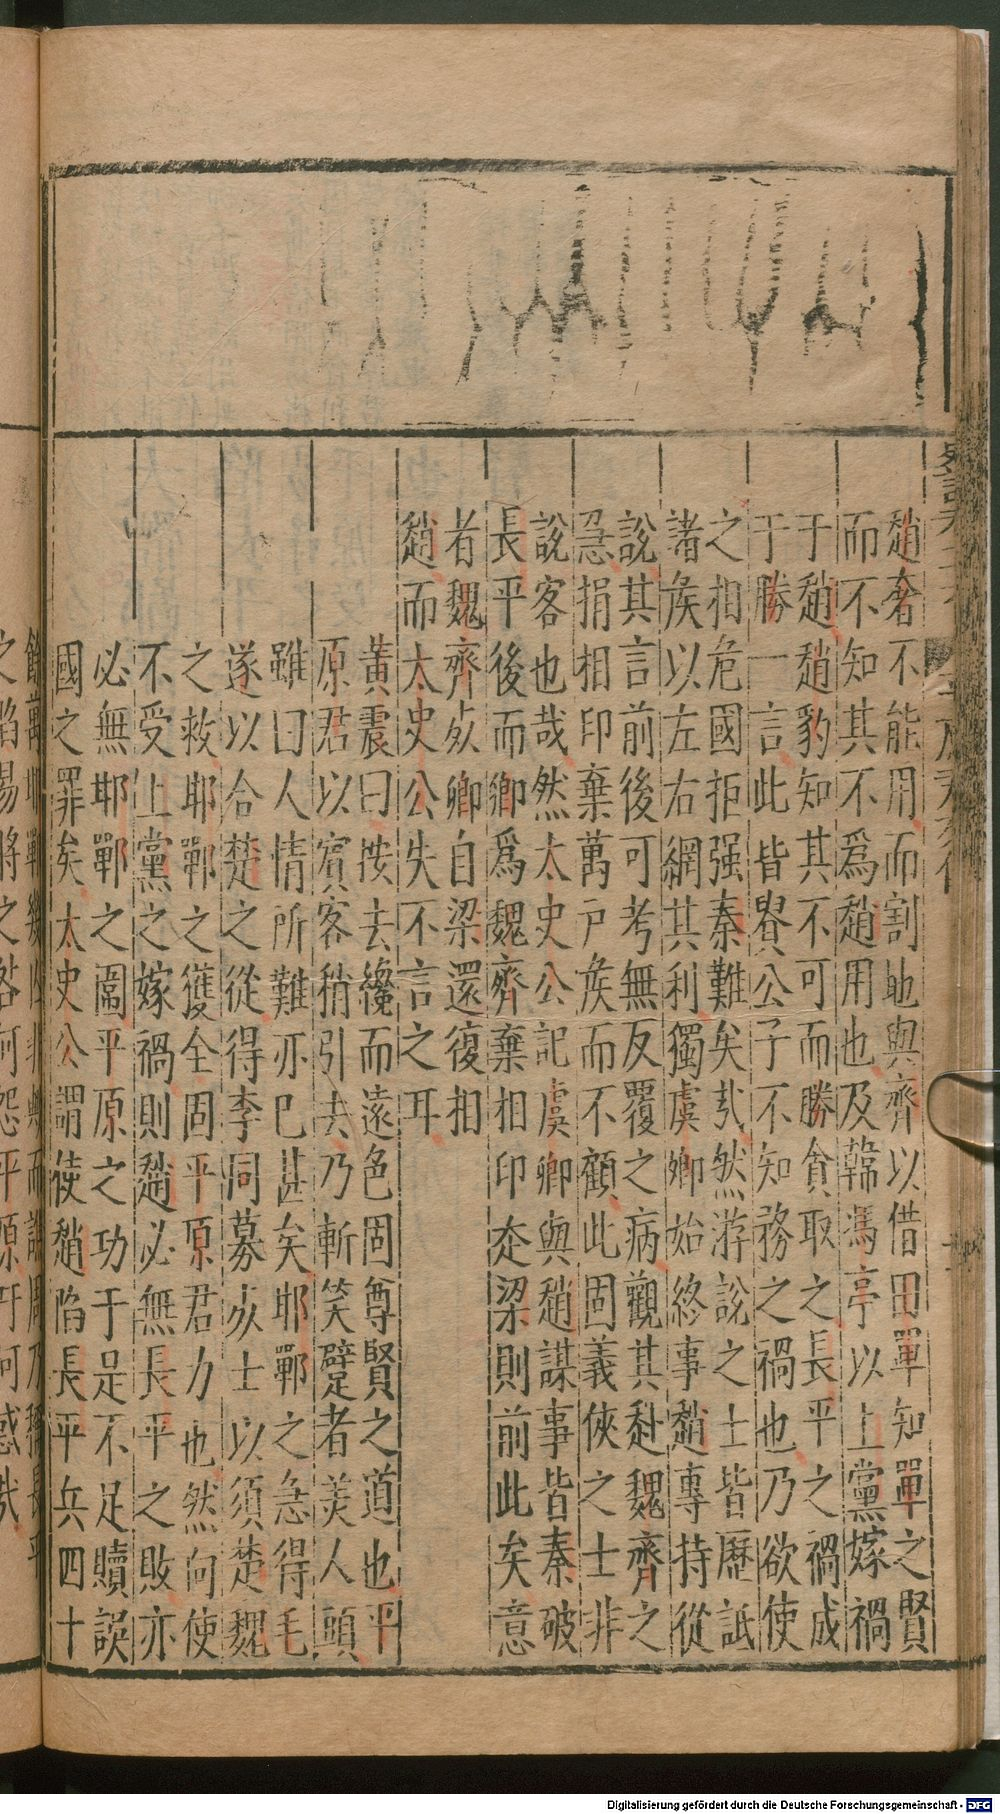 趙奢不能用而割地與齊以借田單知單之賢
而不知其不爲趙用也及韓馮亭以上黨嫁禍
于趙趙豹知其不可而勝貪取之長平之禍成
于勝一言此皆貴公子不知務之禍也乃欲使
之相危國拒强秦難矣哉然游說之士皆歷詆
諸侯以左右網其利獨虞卿始終事趙專持從
說其言前後可考無反覆之病觀其赴魏齊之
急捐相印棄萬戶侯而不顧此固義俠之士非
說客也哉然太史公記虞卿與趙謀事皆秦破
長平後而卿爲魏齊棄相印走梁則前此矣意
者魏齊死卿自梁還復相
趙而太史公失不言之耳
黃震曰按去纔而遠色固尊賢之道也平
原君以賓客稍引去乃斬笑躄者美人頭
雖曰人情所難亦已甚矣邯鄲之急得毛
遂以合楚之從得李同募死士以須楚魏
之救邯鄲之獲全固平原君力也然向使
不受上黨之嫁禍則趙必無長平之敗亦
必無邯鄲之圍平原之功于是不足贖誤
國之罪矣太史公謂使趙陷長平兵四十
Digitalisierung gefördert durch die Deutsche Forschungsgemeinschaft - DFG